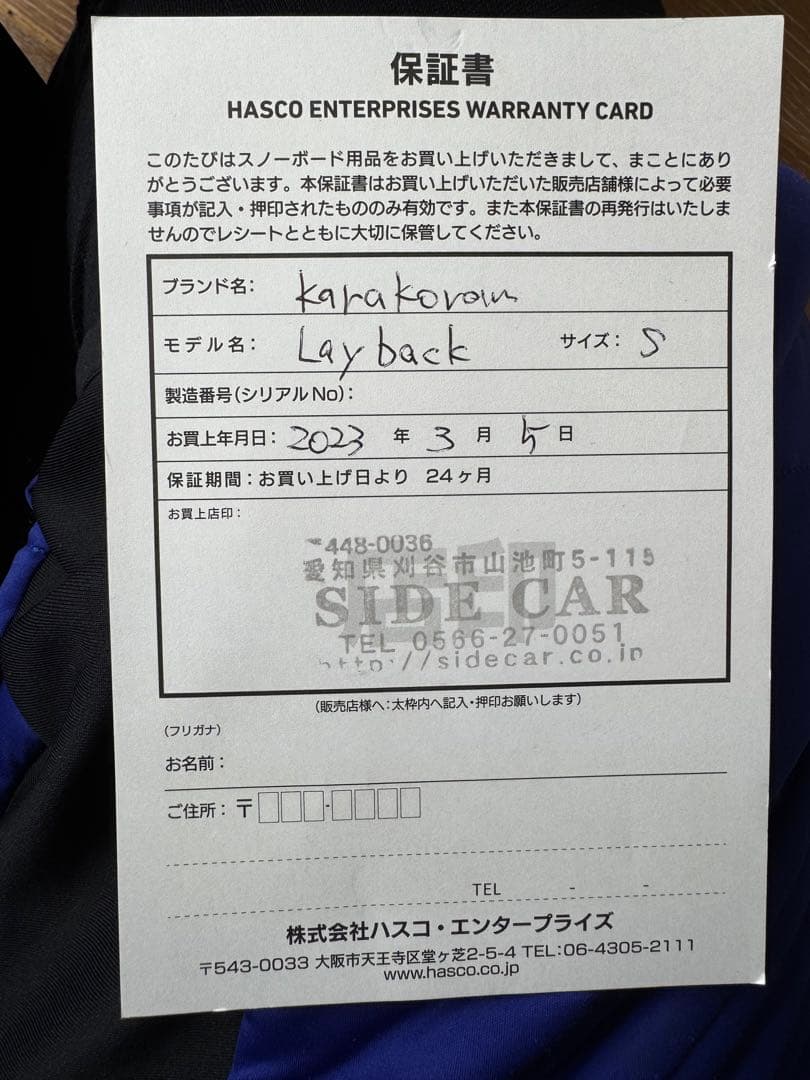 保証書
HASCO ENTERPRISES WARRANTY CARD
このたびはスノーボード用品をお買い上げいただきまして、まことにあり
がとうございます。本保証書はお買い上げいただいた販売店舗様によって必要
事項が記入・押印されたもののみ有効です。また本保証書の再発行はいたしま
せんのでレシートとともに大切に保管してください。
ブランド名： Karakoram
モデル名： Layback サイズ： S
製造番号(シリアルNo)：
お買上年月日： 2023 年 3 月 5 日
保証期間：お買い上げ日より 24ヶ月
お買上店印：
〒448-0036
愛知県刈谷市山池町5-115
SIDE CAR
TEL 0566-27-0051
http://sidecar.co.jp
(販売店様へ：太枠内へ記入・押印お願いします)
(フリガナ)
お名前：
ご住所：〒 -
TEL - -
株式会社ハスコ・エンタープライズ
〒543-0033 大阪市天王寺区堂ヶ芝2-5-4 TEL：06-4305-2111
www.hasco.co.jp